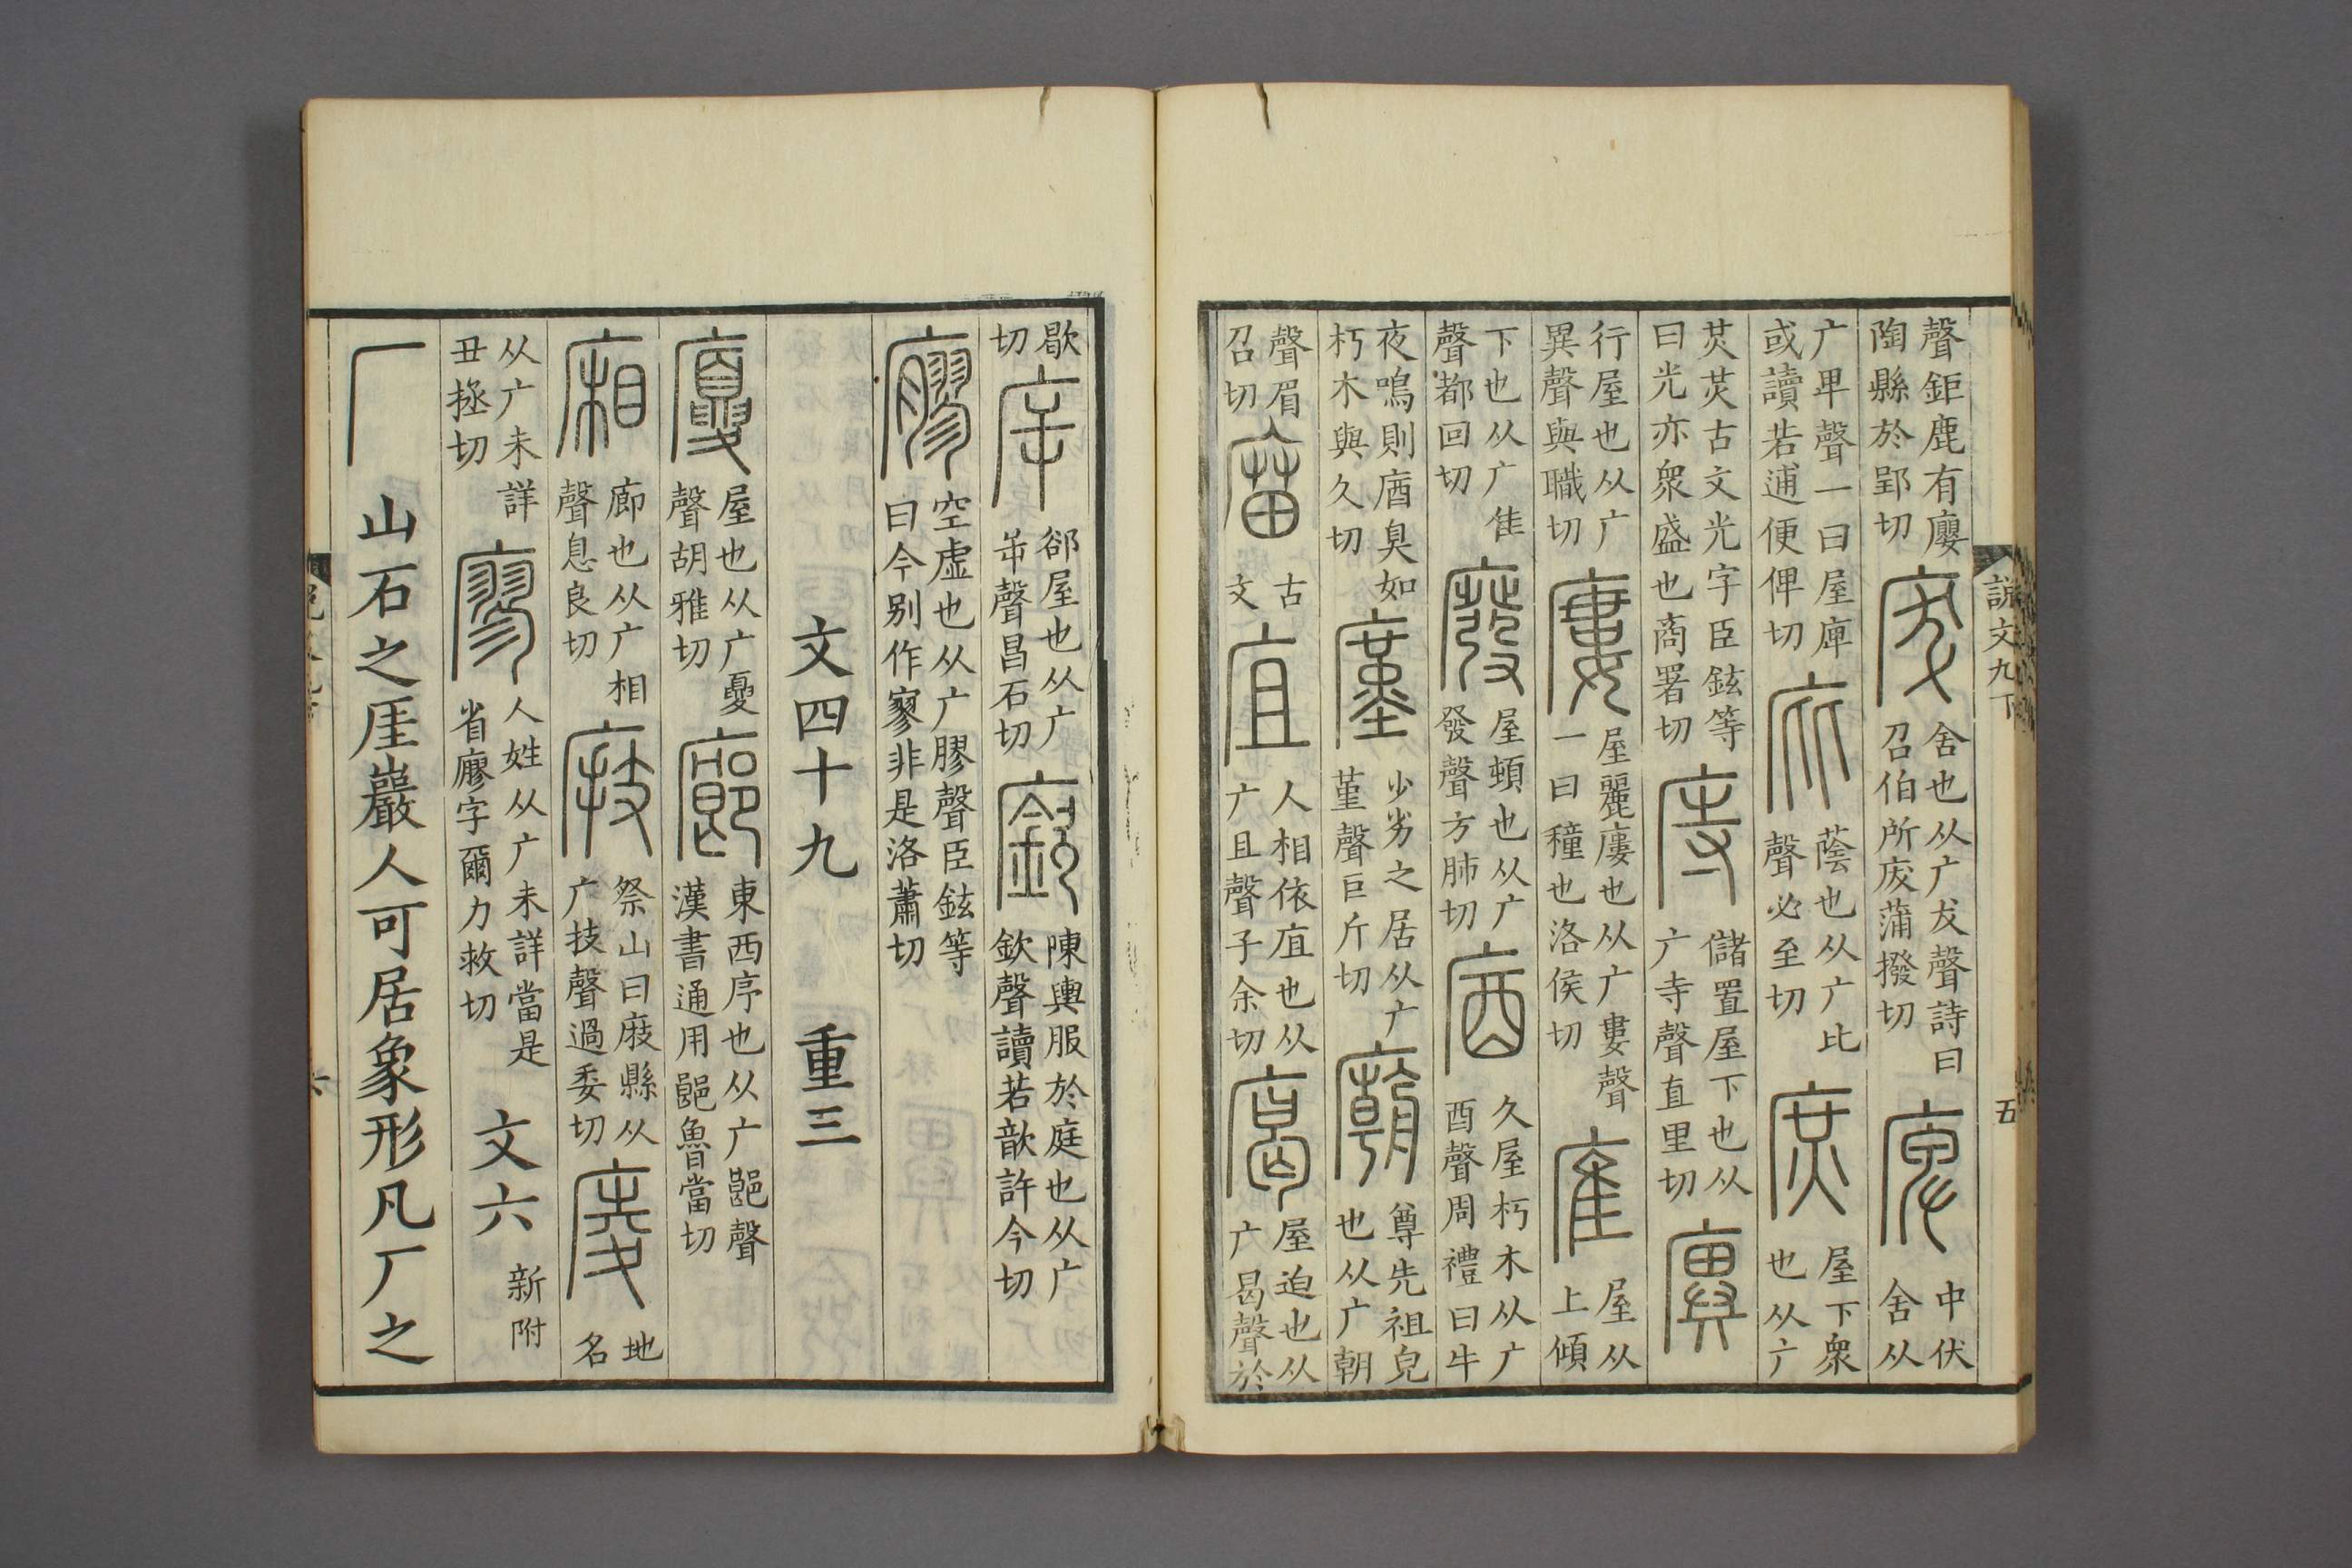 說文九下 五
聲鉅鹿有廮陶縣於郢切 𢇷 舍也从广犮聲詩曰召伯所𢇷蒲撥切 庳 中伏舍从
广卑聲一曰屋庳或讀若逋便俾切 庇 蔭也从广比聲必至切 庶 屋下衆也从广
炗炗古文光字臣鉉等曰光亦衆盛也商署切 庤 儲置屋下也从广寺聲直里切 廙
行屋也从广異聲與職切 廔 屋麗廔也从广婁聲一曰穜也洛侯切 㢈 屋从上傾
下也从广隹聲都回切 廢 屋頓也从广發聲方肺切 庮 久屋朽木从广酉聲周禮曰牛
夜鳴則庮臭如朽木與久切 廑 少劣之居从广堇聲巨斤切 廟 尊先祖皃也从广朝
聲眉召切 庿 古文 㡹 人相依㡹也从广且聲子余切 𢉩 屋迫也从广曷聲於
歇切 㡿 郤屋也从广屰聲昌石切 廞 陳輿服於庭也从广欽聲讀若歆許今切
廫 空虛也从广膠聲臣鉉等曰今别作寥非是洛蕭切
文四十九 重三
廈 屋也从广夏聲胡雅切 廊 東西序也从广郎聲漢書通用郎魯當切
廂 廊也从广相聲息良切 庪 祭山曰庪縣从广技聲過委切 庱 地名
从广未詳丑拯切 廖 人姓从广未詳當是省廫字爾力救切 文六 新附
厂 山石之厓巖人可居象形凡厂之